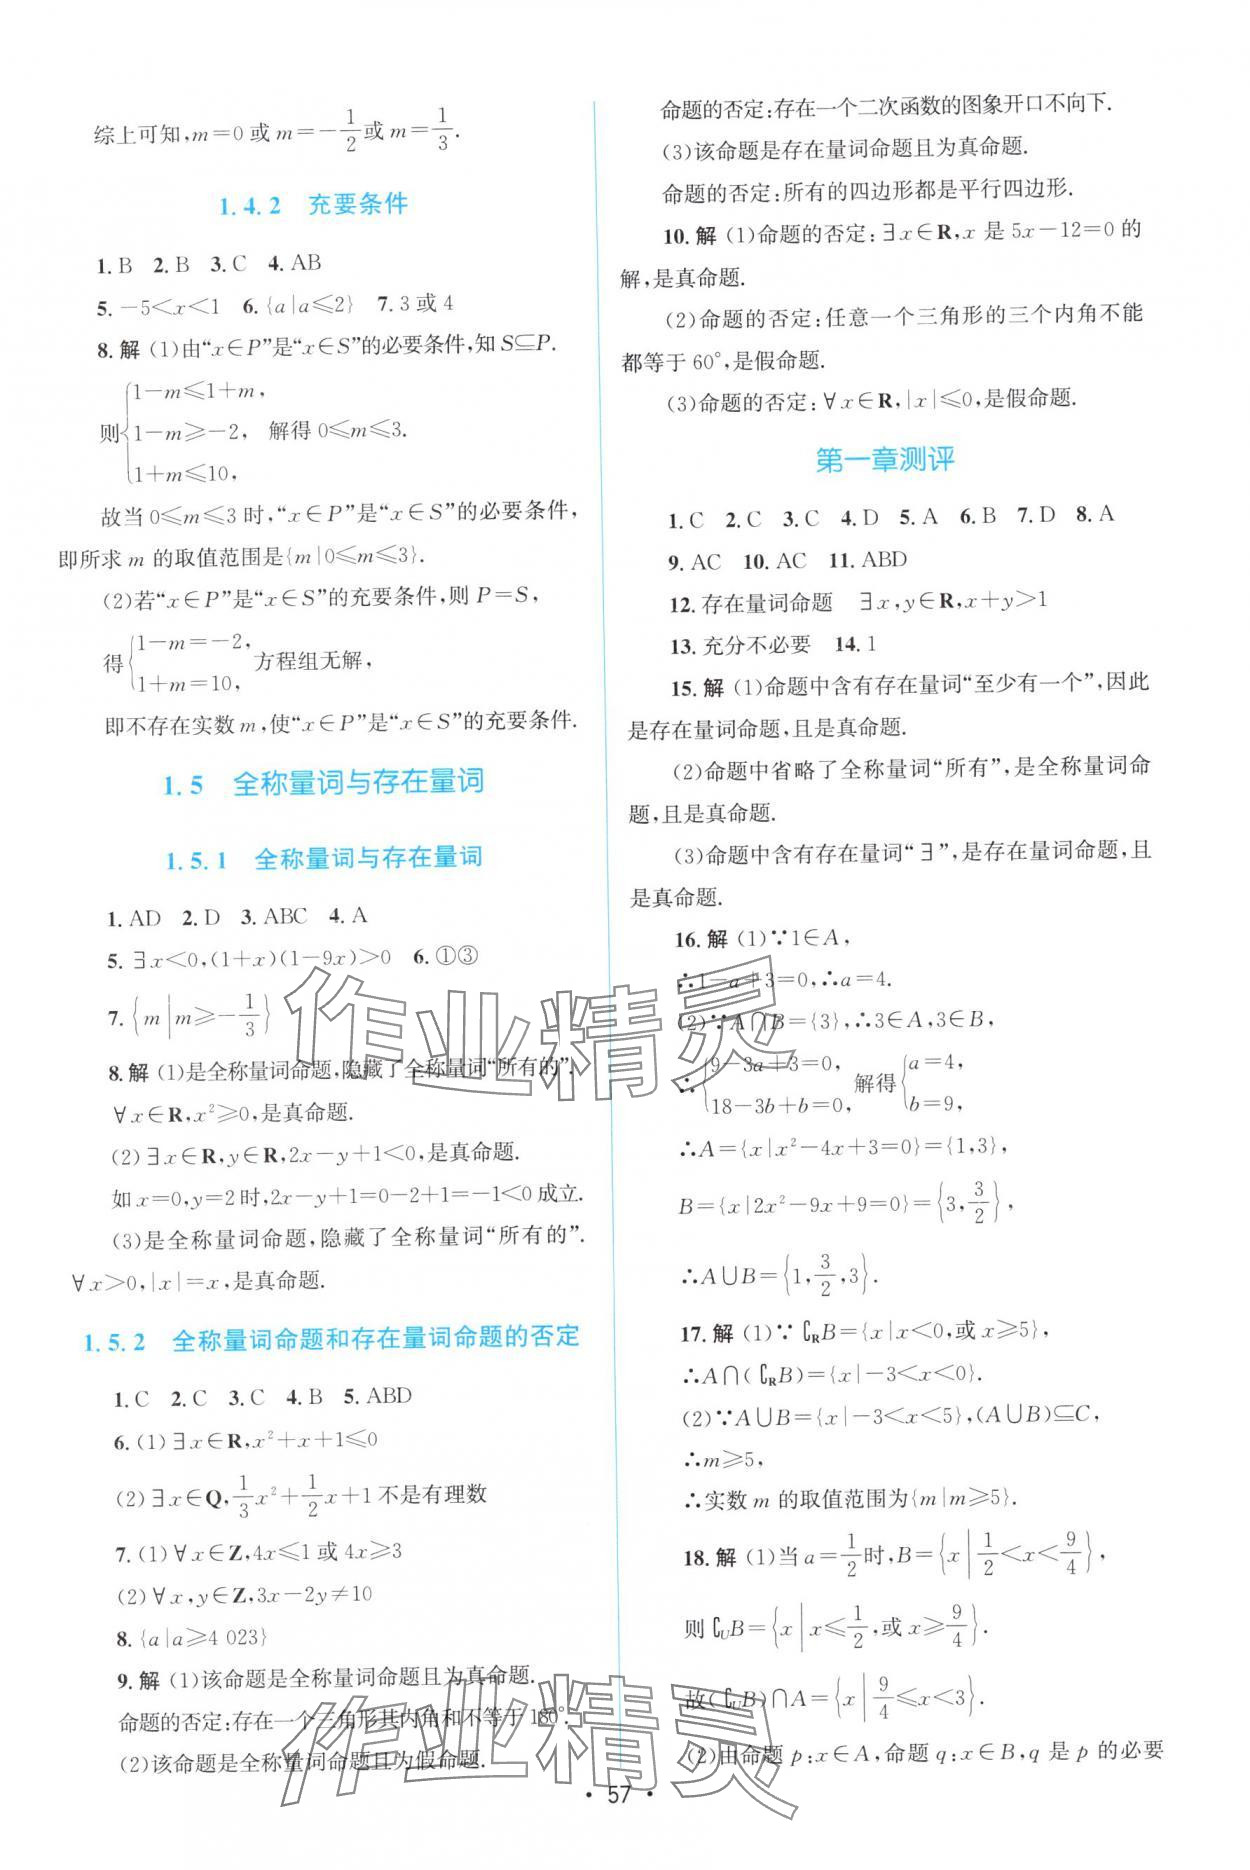 综上可知,m=0或m=-1/2或m=1/3.
1.4.2 充要条件
1.B 2.B 3.C 4.AB
5.-5<x<1 6.{a|a≤2} 7.3或4
8.解 (1)由“x∈P”是“x∈S”的必要条件,知S⊆P.
则{1-m≤1+m,
1-m≥-2, 解得0≤m≤3.
1+m≤10,
故当0≤m≤3时,“x∈P”是“x∈S”的必要条件,
即所求m的取值范围是{m|0≤m≤3}.
(2)若“x∈P”是“x∈S”的充要条件,则P=S,
得{1-m=-2,
1+m=10, 方程组无解,
即不存在实数m,使“x∈P”是“x∈S”的充要条件.
1.5 全称量词与存在量词
1.5.1 全称量词与存在量词
1.AD 2.D 3.ABC 4.A
5.∃x<0,(1+x)(1-9x)>0 6.①③
7.{m|m≥-1/3}
8.解 (1)是全称量词命题,隐藏了全称量词“所有的”.
∀x∈R,x²≥0,是真命题.
(2)∃x∈R,y∈R,2x-y+1<0,是真命题.
如x=0,y=2时,2x-y+1=0-2+1=-1<0成立.
(3)是全称量词命题,隐藏了全称量词“所有的”.
∀x>0,|x|=x,是真命题.
1.5.2 全称量词命题和存在量词命题的否定
1.C 2.C 3.C 4.B 5.ABD
6.(1)∃x∈R,x²+x+1≤0
(2)∃x∈Q,1/3x²+1/2x+1不是有理数
7.(1)∀x∈Z,4x≤1或4x≥3
(2)∀x,y∈Z,3x-2y≠10
8.{a|a≥4 023}
9.解 (1)该命题是全称量词命题且为真命题.
命题的否定:存在一个三角形其内角和不等于180°.
(2)该命题是全称量词命题且为假命题.
命题的否定:存在一个二次函数的图象开口不向下.
(3)该命题是存在量词命题且为真命题.
命题的否定:所有的四边形都是平行四边形.
10.解 (1)命题的否定:∃x∈R,x是5x-12=0的
解,是真命题.
(2)命题的否定:任意一个三角形的三个内角不能
都等于60°,是假命题.
(3)命题的否定:∀x∈R,|x|≤0,是假命题.
第一章测评
1.C 2.C 3.C 4.D 5.A 6.B 7.D 8.A
9.AC 10.AC 11.ABD
12.存在量词命题 ∃x,y∈R,x+y>1
13.充分不必要 14.1
15.解 (1)命题中含有存在量词“至少有一个”,因此
是存在量词命题,且是真命题.
(2)命题中省略了全称量词“所有”,是全称量词命
题,且是真命题.
(3)命题中含有存在量词“∃”,是存在量词命题,且
是真命题.
16.解 (1)∵1∈A,
∴1-a+3=0,∴a=4.
(2)∵A∩B={3},∴3∈A,3∈B,
∴{9-3a+3=0,
18-3b+b=0, 解得{a=4,
b=9,
∴A={x|x²-4x+3=0}={1,3},
B={x|2x²-9x+9=0}={3,3/2},
∴A∪B={1,3/2,3}.
17.解 (1)∵∁RB={x|x<0,或x≥5},
∴A∩(∁RB)={x|-3<x<0}.
(2)∵A∪B={x|-3<x<5},(A∪B)⊆C,
∴m≥5,
∴实数m的取值范围为{m|m≥5}.
18.解 (1)当a=1/2时,B={x|1/2<x<9/4},
则∁UB={x|x≤1/2,或x≥9/4}.
故(∁UB)∩A={x|9/4≤x<3}.
(2)由命题p:x∈A,命题q:x∈B,q是p的必要
作业精灵
作业精灵
·57·